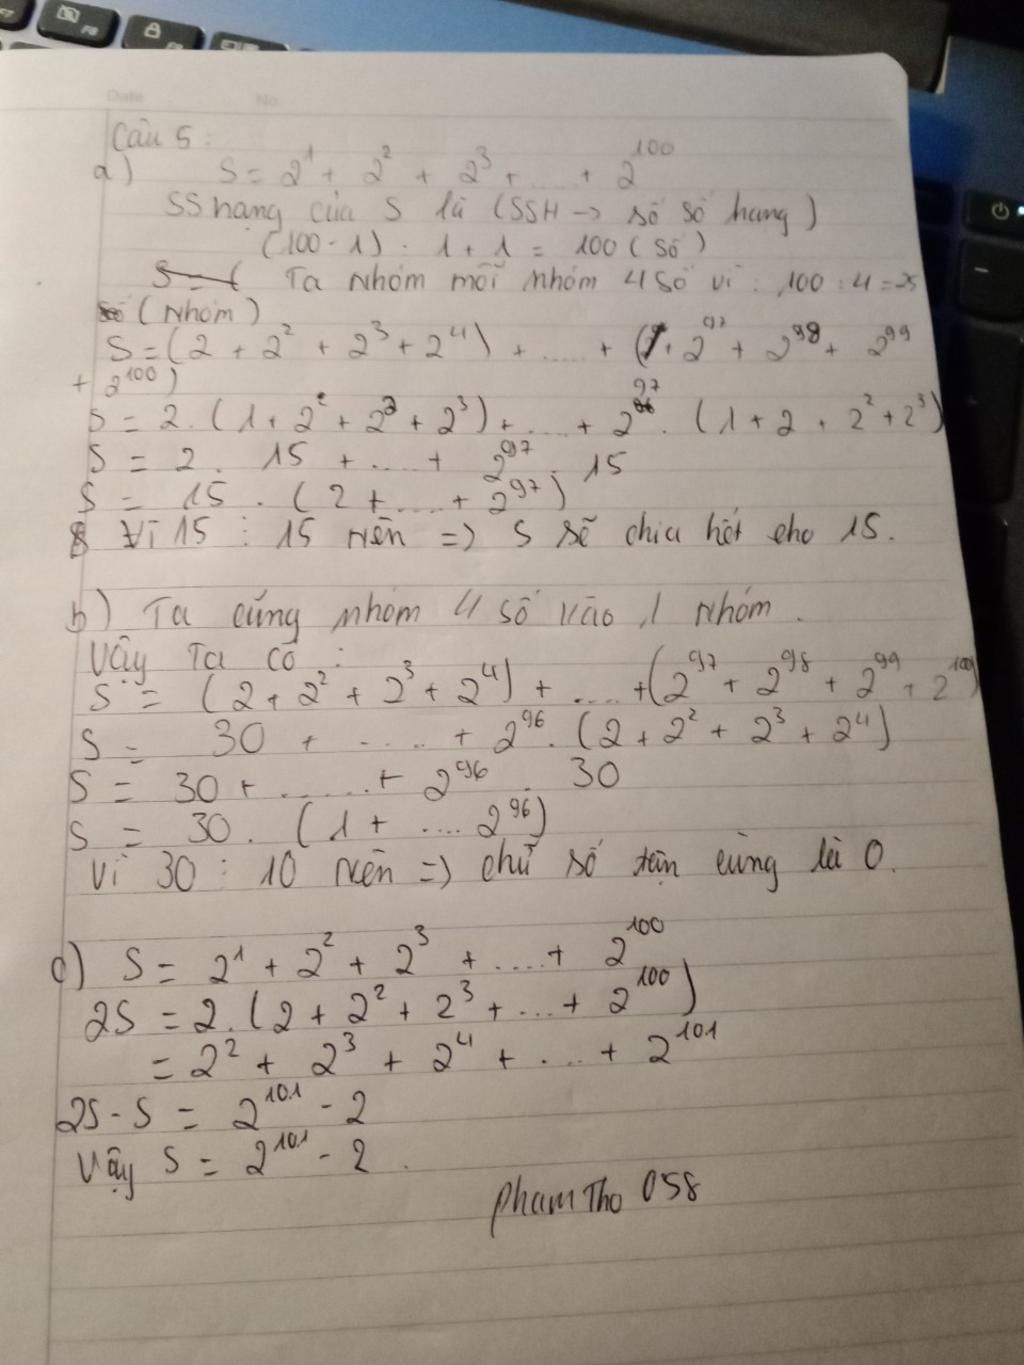 Date No.
Câu 5 :
a) S = 2¹ + 2² + 2³ + .... + 2¹⁰⁰
SS hạng của S là (SSH -> số số hạng)
(100 - 1) : 1 + 1 = 100 (số)
S = ( Ta nhóm mỗi nhóm 4 số vì : 100 : 4 = 25
(nhóm)
S = (2 + 2² + 2³ + 2⁴) + ..... + (2⁹⁷ + 2⁹⁸ + 2⁹⁹
+ 2¹⁰⁰)
S = 2 . (1 + 2² + 2² + 2³) + .... + 2⁹⁷ . (1 + 2 + 2² + 2³)
S = 2 . 15 + .... + 2⁹⁷ . 15
S = 15 . (2 + .... + 2⁹⁷)
Vì 15 : 15 nên => S sẽ chia hết cho 15.
b) Ta cũng nhóm 4 số vào 1 nhóm .
Vậy ta có :
S = (2 + 2² + 2³ + 2⁴) + .... + (2⁹⁷ + 2⁹⁸ + 2⁹⁹ + 2¹⁰⁰)
S = 30 + ..... + 2⁹⁶ . (2 + 2² + 2³ + 2⁴)
S = 30 + ...... + 2⁹⁶ . 30
S = 30 . (1 + .... 2⁹⁶)
Vì 30 : 10 nên => chữ số tận cùng là 0.
c) S = 2¹ + 2² + 2³ + .... + 2¹⁰⁰
2S = 2 . (2 + 2² + 2³ + ... + 2¹⁰⁰)
= 2² + 2³ + 2⁴ + .... + 2¹⁰¹
2S - S = 2¹⁰¹ - 2
Vậy S = 2¹⁰¹ - 2 .
phamTho 058